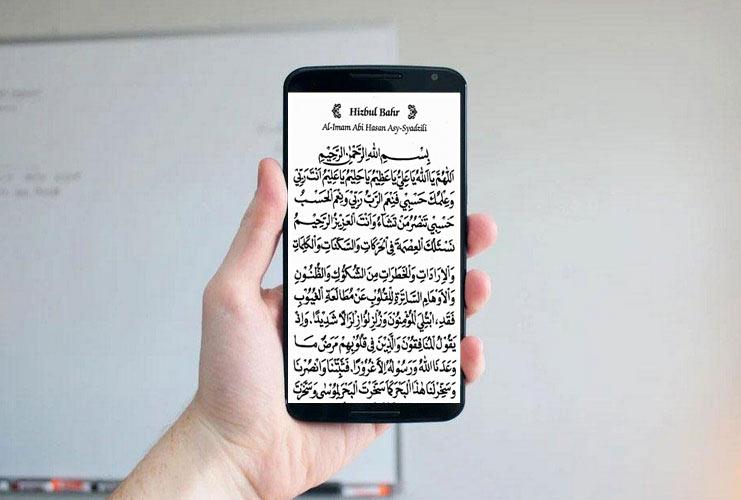 Hizbul Bahr
Al-Imam Abi Hasan Asy-Syadzili
بِسْمِ اللهِ الرَّحْمٰنِ الرَّحِيْمِ
اَللّٰهُمَّ يَا اَللهُ يَا عَلِيُّ يَا عَظِيْمُ يَا حَلِيْمُ يَا عَلِيْمُ اَنْتَ رَبِّيْ
وَعِلْمُكَ حَسْبِيْ فَنِعْمَ الرَّبُّ رَبِّيْ وَنِعْمَ الْحَسْبُ
حَسْبِيْ تَنْصُرُ مَنْ تَشَاءُ وَاَنْتَ الْعَزِيْزُ الرَّحِيْمُ
نَسْئَلُكَ الْعِصْمَةَ فِى الْحَرَكَاتِ وَالسَّكَنَاتِ وَالْكَلِمَاتِ
وَالْاِرَادَاتِ وَالْخَطَرَاتِ مِنَ الشُّكُوْكِ وَالظُّنُوْنِ
وَالْاَوْهَامِ السَّاتِرَةِ لِلْقُلُوْبِ عَنْ مُطَالَعَةِ الْغُيُوْبِ
فَقَدِ، ابْتُلِيَ الْمُؤْمِنُوْنَ وَزُلْزِلُوْا زِلْزَالًا شَدِيْدًا. وَاِذْ
يَقُوْلُ الْمُنَافِقُوْنَ وَالَّذِيْنَ فِى قُلُوْبِهِمْ مَرَضٌ مَا
وَعَدَنَا اللهُ وَرَسُوْلُهُ اِلَّا غُرُوْرًا. فَثَبِّتْنَا وَانْصُرْنَا
وَسَخِّرْ لَنَا هٰذَا الْبَحْرَ كَمَا سَخَّرْتَ الْبَحْرَ لِمُوْسٰى وَسَخَّرْتَ